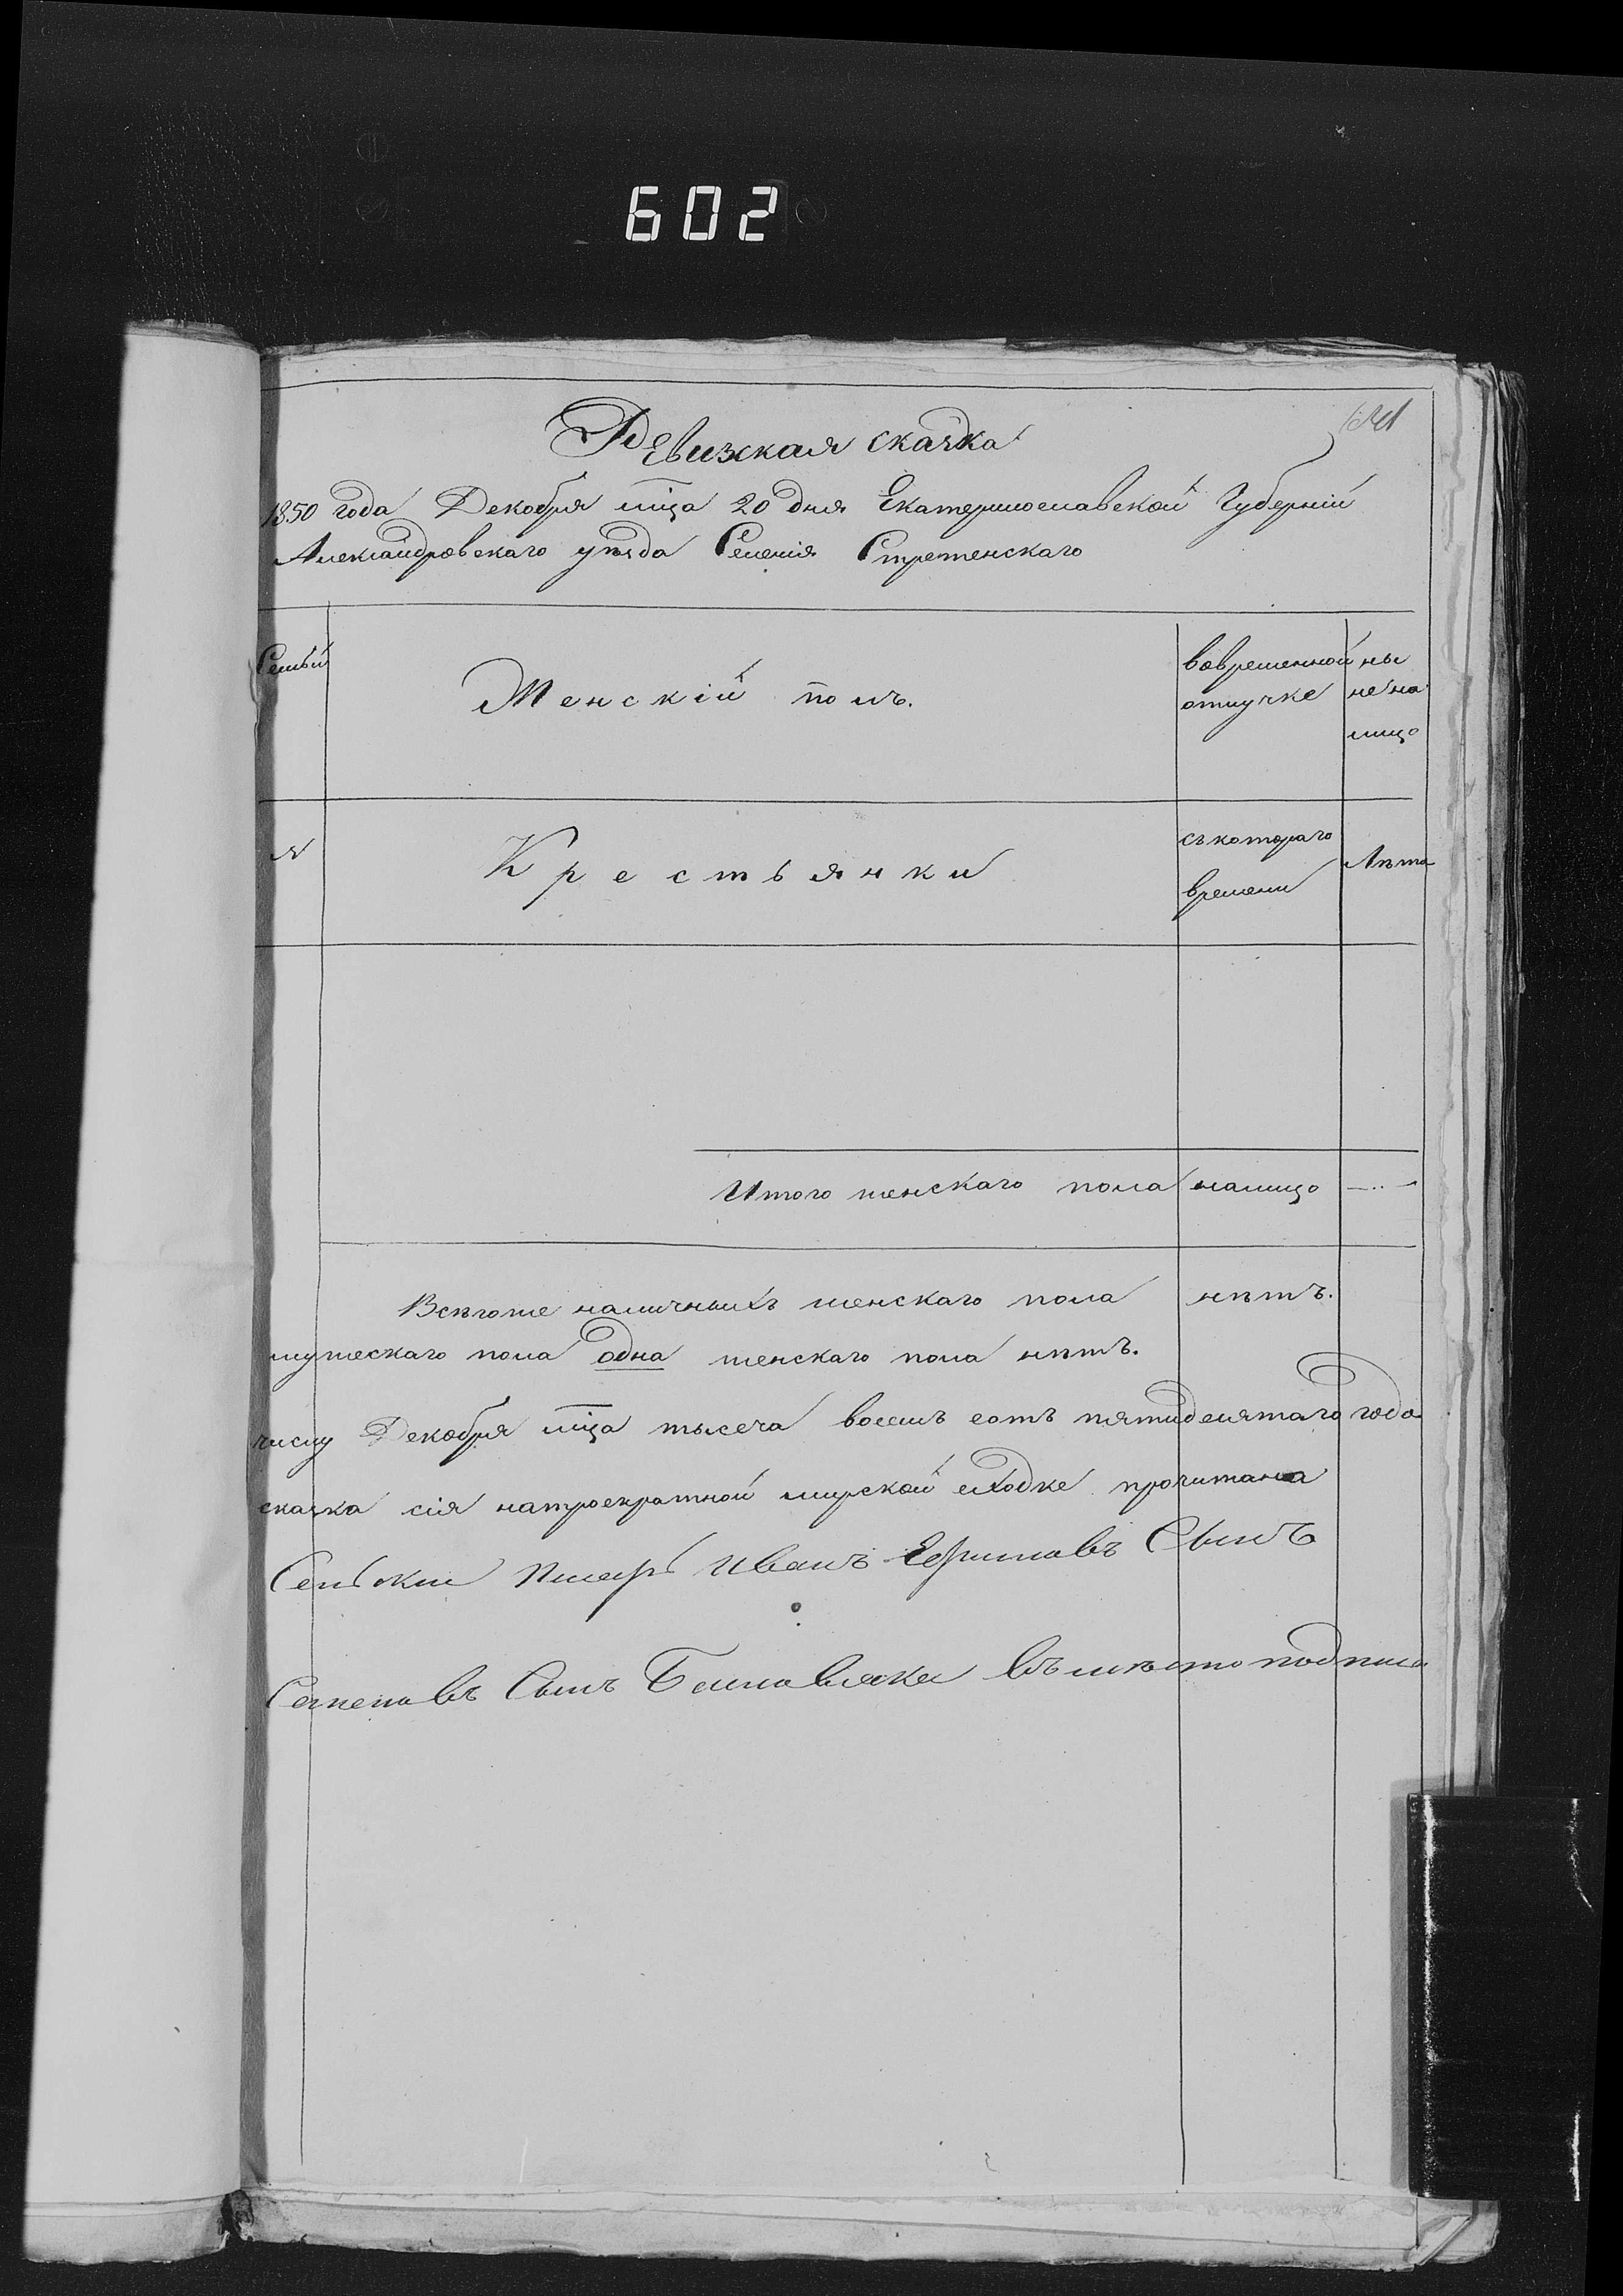 602
Ревизская сказка
1850 года Декабря мца 20 дня Екатеринославской Губерніи
Александровскаго уѣзда Селенія Стретенскаго
Семьи
Женскій полъ.
вовременной
отлучке
ны
не на
лицо
№
Крестьянки
съкотораго
времени
Лѣта
Итого женскаго пола налицо —..—
Всѣгоже наличныхъ женскаго пола нѣтъ.
мужескаго пола одна женскаго пола нѣтъ.
числу Декабря мца тысеча восемь сотъ пятидесятаго года
сказка сія натроекратной мирской сходке прочитана
Сельски Писарь Иванъ Сынъ
Сынъ въместо подписа